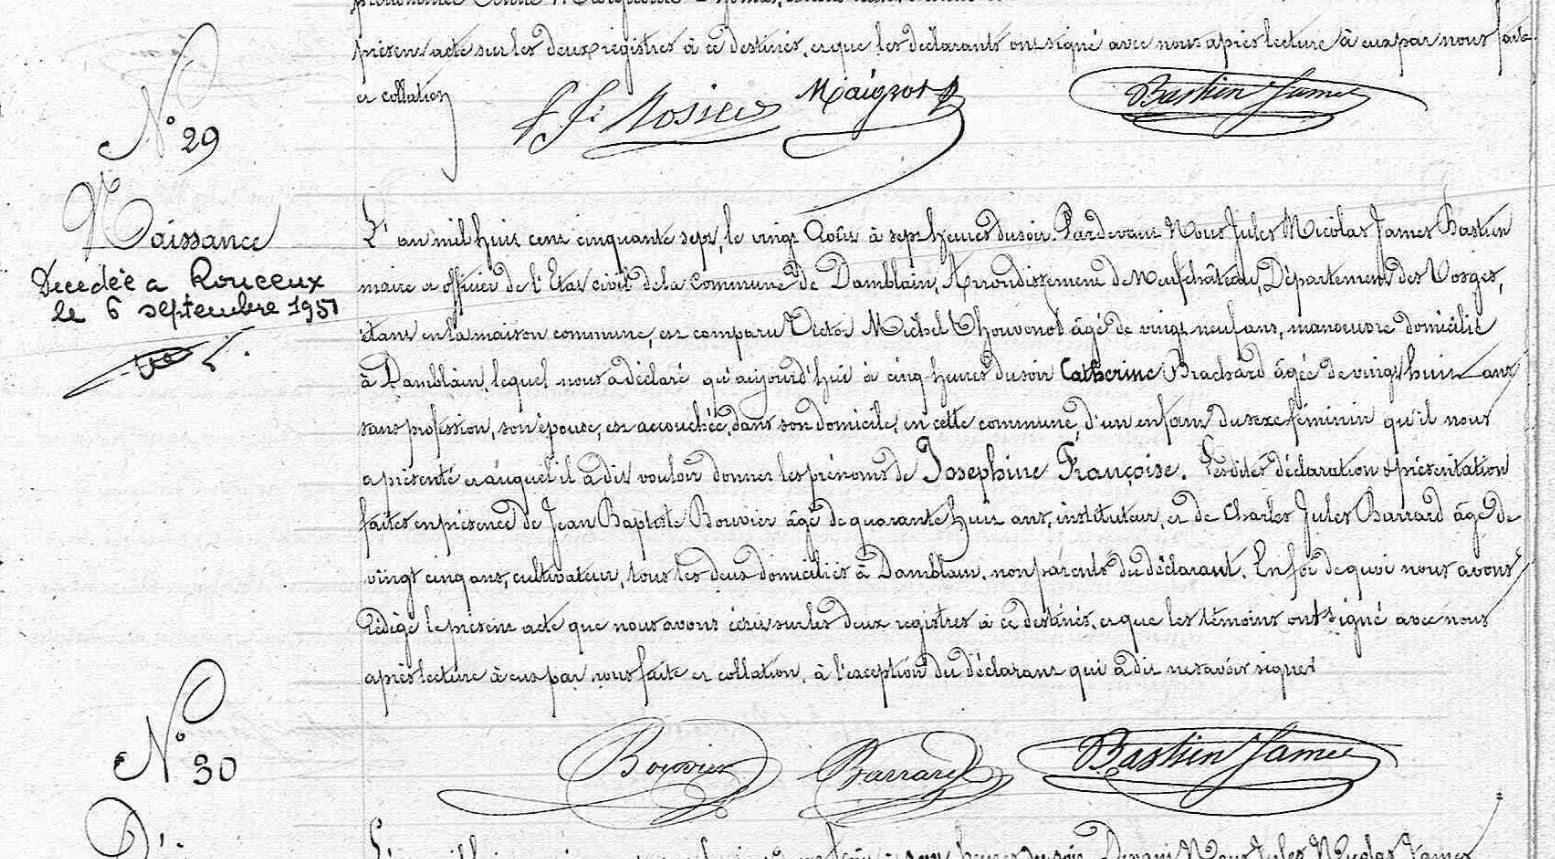 présent acte sur les deux registres à ce destinés, et que les déclarants ont signé avec nous après lecture à eux par nous faite
et collation
Maigrot
Bastien James
N° 29
Naissance
Decedée a Rouceux
le 6 septembre 1951
L'an mil huit cent cinquante sept, le vingt Août à sept heures du soir. Pardevant Nous Jules Nicolas James Bastien
maire et officier de l'Etat civil de la Commune de Damblain, Arrondissement de Neufchâteau, Département des Vosges,
étant en la maison commune, est comparu Victor Michel Thouvenot âgé de vingt neuf ans, manoeuvre domicilié
à Damblain, lequel nous a déclaré qu'aujourd'hui à cinq heures du soir Catherine Brachard âgée de vingt huit ans
sans profession, son épouse, est accouchée, dans son domicile, en cette commune, d'un enfant du sexe féminin qu'il nous
a présenté et auquel il a dit vouloir donner les prénoms de Josephine Françoise. Lesdites déclaration & présentation
faites en présence de Jean Baptiste Bouvier âgé de quarante huit ans, instituteur, et de Charles Jules Barrard âgé de
vingt cinq ans, cultivateur, tous les deux domiciliés à Damblain, non parents du déclarant. En foi de quoi nous avons
rédigé le présent acte que nous avons écrit sur les deux registres à ce destinés, et que les témoins ont signé avec nous
après lecture à eux par nous faite et collation, à l'exception du déclarant qui a dit ne savoir signer
Bouvier Barrard Bastien James
N° 30